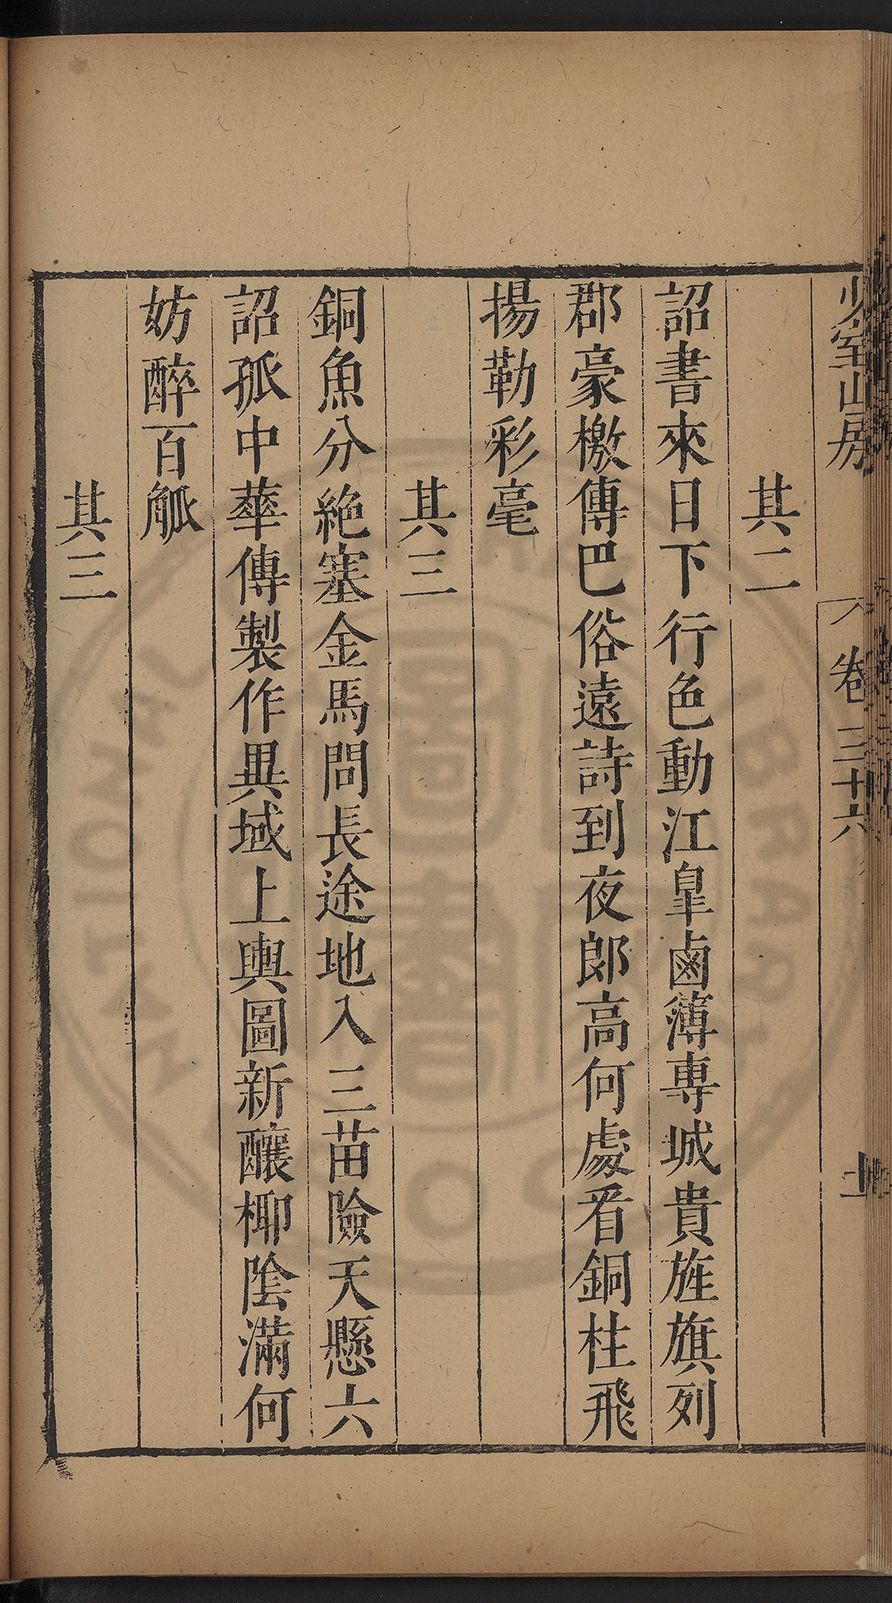 少室山房
卷三十六
其二
詔書來日下行色動江皐鹵簿専城貴旌旗列
郡豪檄傳巴俗遠詩到夜郎高何處看銅柱飛
揚勒彩毫
其三
銅魚分絶塞金馬問長途地入三苗險天懸六
詔孤中華傳製作異域上輿圖新釀椰陰滿何
妨醉百觚
其三